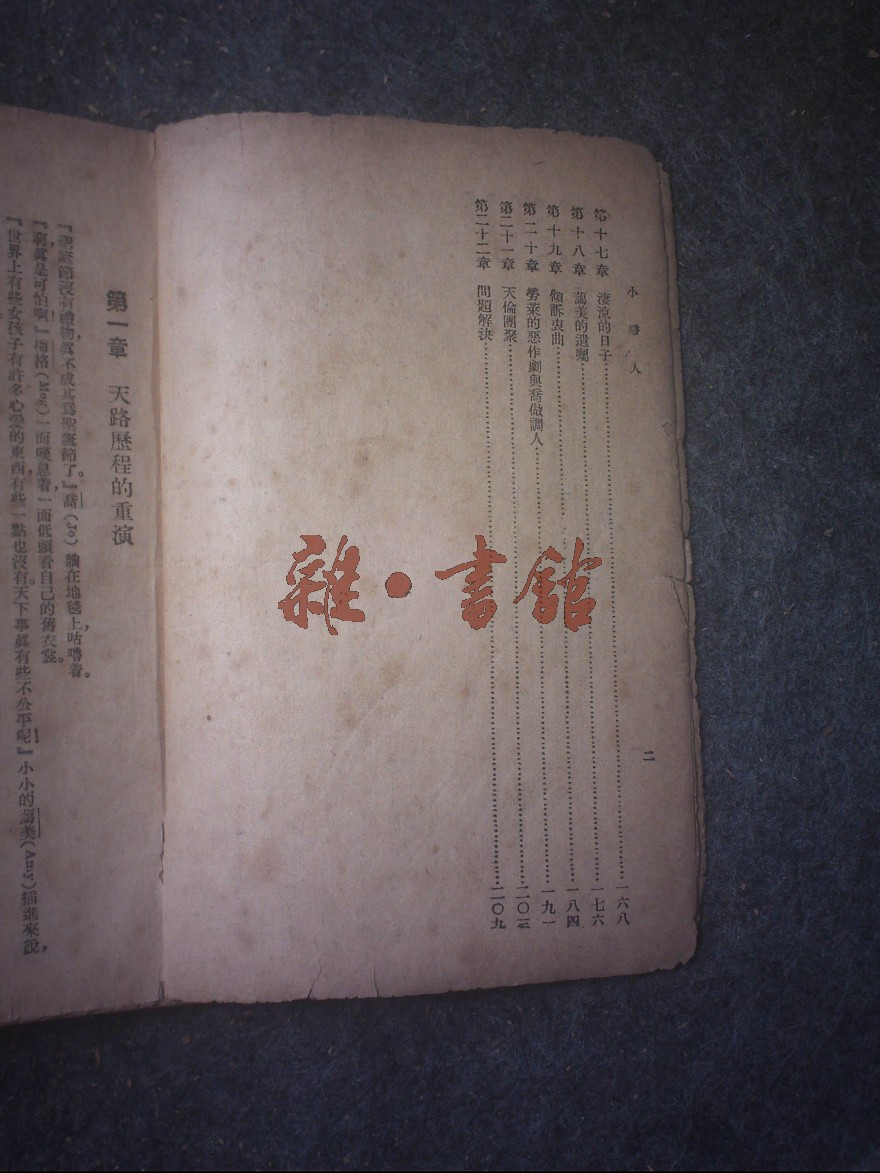 小婦人
二
第十七章 淒涼的日子……一六八
第十八章 藹美的遺囑……一七六
第十九章 傾訴衷曲……一八四
第二十章 勞萊的惡作劇與喬做調人……一九一
第二十一章 天倫團聚……二〇三
第二十二章 問題解決……二〇九
雜·書館
第一章 天路歷程的重演
『聖誕節沒有禮物，眞不成其爲聖誕節了。』喬(Jo)躺在地毯上咕嚕着。
『窮眞是可怕啊』梅格(Meg)一面嘆息着，一面低頭看自己的舊衣裳。
『世界上有些女孩子有許多心愛的東西，有些一點也沒有。天下事眞有些不公平呢』小小的藹美(Amy)插進來說，